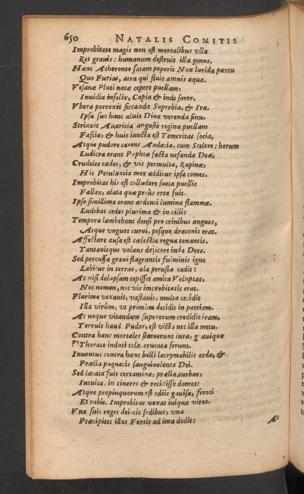 650 NATALIS COMITIS
Improbitate magis non est mortalibus vlla
Res grauis: humanum destruit illa genus.
Hanc Acheronte satam peperit Nox lurida partu
Quo Furias, atra qui fluit amnis aqua.
Vesana Pluti nata cepere puellam:
Inuidia infelix, Copia & inde soror.
Vbera porrexit siccanda Superbia, & Ira.
Ipsa suo hanc aluit Diua verenda sinu.
Strinxit Auaritia angustè regina puellam
Fascia, & huic iuncta est Temeritas socia,
Atque pudore carens Audacia, cum Scelere: horum
Ludicra erant Paphiæ facta nefanda Deæ,
Crudeles cædes, & vis permulta, Rapinæ:
His Petulantia mox additur ipsa comes.
Improbitas his est colludere sueta puellis
Fallax, alata quæ priùs orta fuit.
Ipsi simillima erant ardenti lumina flammæ.
Ludebat cedes plurima & in
Tempora lambebant densi pro crinibus angues,
Atque vngues curui, pesque draconis erat.
Affectare ausa est cælestia regna tonantis,
Tantauitque volans deijcere inde Deos.
Sed percussa graui flagrantis fulminis igne
Labitur in terras, ala perusta cadit:
Ac nisi dolosam cepisset amica Voluptas,
Nec nomen, nec vis improbitatis erat.
Plurima vexauit, vastauit, multa cæcidit
Illa virûm, vt primùm decidit in patriam.
Ac neque vitandam superorum credidit iram,
Terruit haud Pudor, est victa nec illa metu.
Contra hanc mortales statuerunt iura, grauique
Thorace induti tela cruenta ferunt.
Inuentus contra hanc belli lacrymabilis ordo, &
Prælia pugnacis sanguinolenta Dei.
Sed læsa suis certamina, prælia, turbas:
Intuita, in cineres & recidisse domos:
Atque propinquorum est odijs gauisa, feroci
Et rabie. Improbitas vexat iniqua viros.
Vna suis reges deicis sedibus; vna
Præcipites illas Fortis ad ima dedit:
At